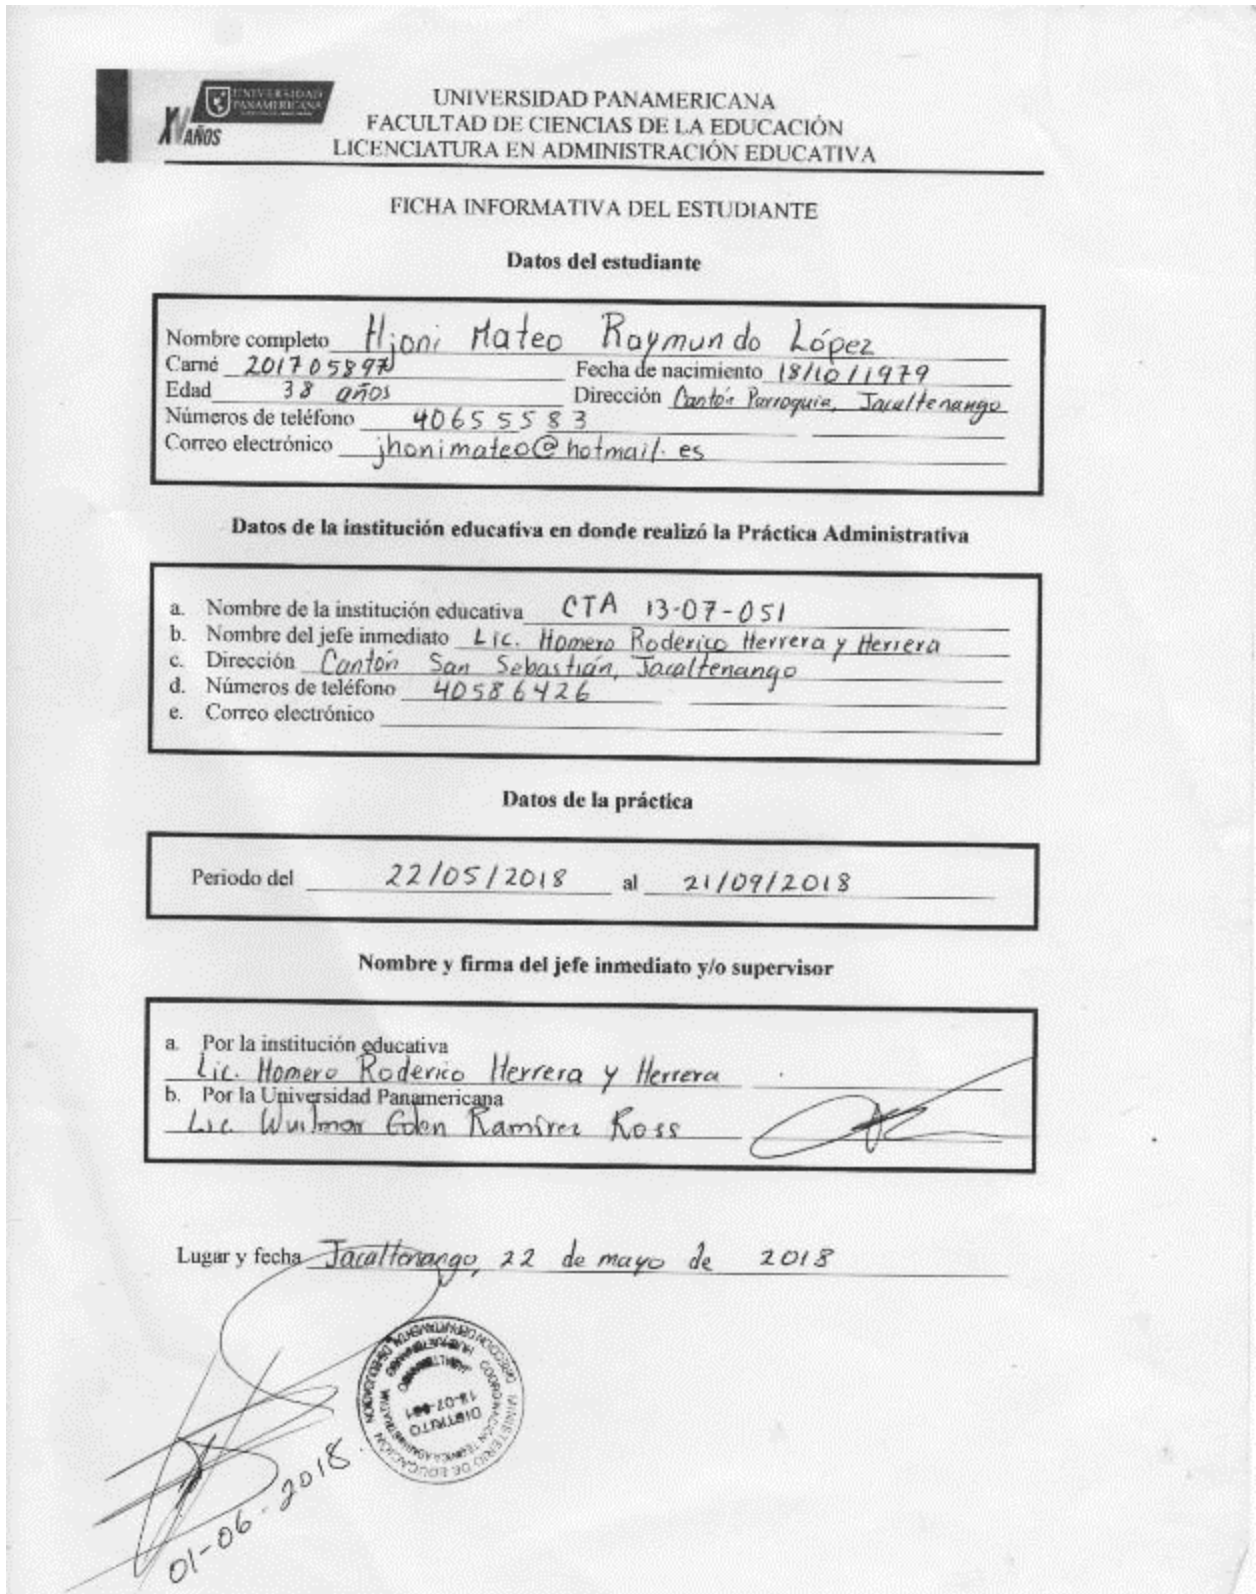 UNIVERSIDAD
PANAMERICANA
XV AÑOS
UNIVERSIDAD PANAMERICANA
FACULTAD DE CIENCIAS DE LA EDUCACIÓN
LICENCIATURA EN ADMINISTRACIÓN EDUCATIVA
FICHA INFORMATIVA DEL ESTUDIANTE
Datos del estudiante
Nombre completo Hjoni Mateo Raymundo López
Carné 201705897 Fecha de nacimiento 18/10/1979
Edad 38 años Dirección Cantón Parroquia, Jacaltenango
Números de teléfono 40655583
Correo electrónico jhonimateo@hotmail.es
Datos de la institución educativa en donde realizó la Práctica Administrativa
a. Nombre de la institución educativa CTA 13-07-051
b. Nombre del jefe inmediato Lic. Homero Roderico Herrera y Herrera
c. Dirección Cantón San Sebastián, Jacaltenango
d. Números de teléfono 40586426
e. Correo electrónico
Datos de la práctica
Periodo del 22/05/2018 al 21/09/2018
Nombre y firma del jefe inmediato y/o supervisor
a. Por la institución educativa
Lic. Homero Roderico Herrera y Herrera
b. Por la Universidad Panamericana
Lic. Wuilmar Ramírez Ross
Lugar y fecha Jacaltenango, 22 de mayo de 2018
MINISTERIO DE EDUCACIÓN
DISTRITO
01-06-2018